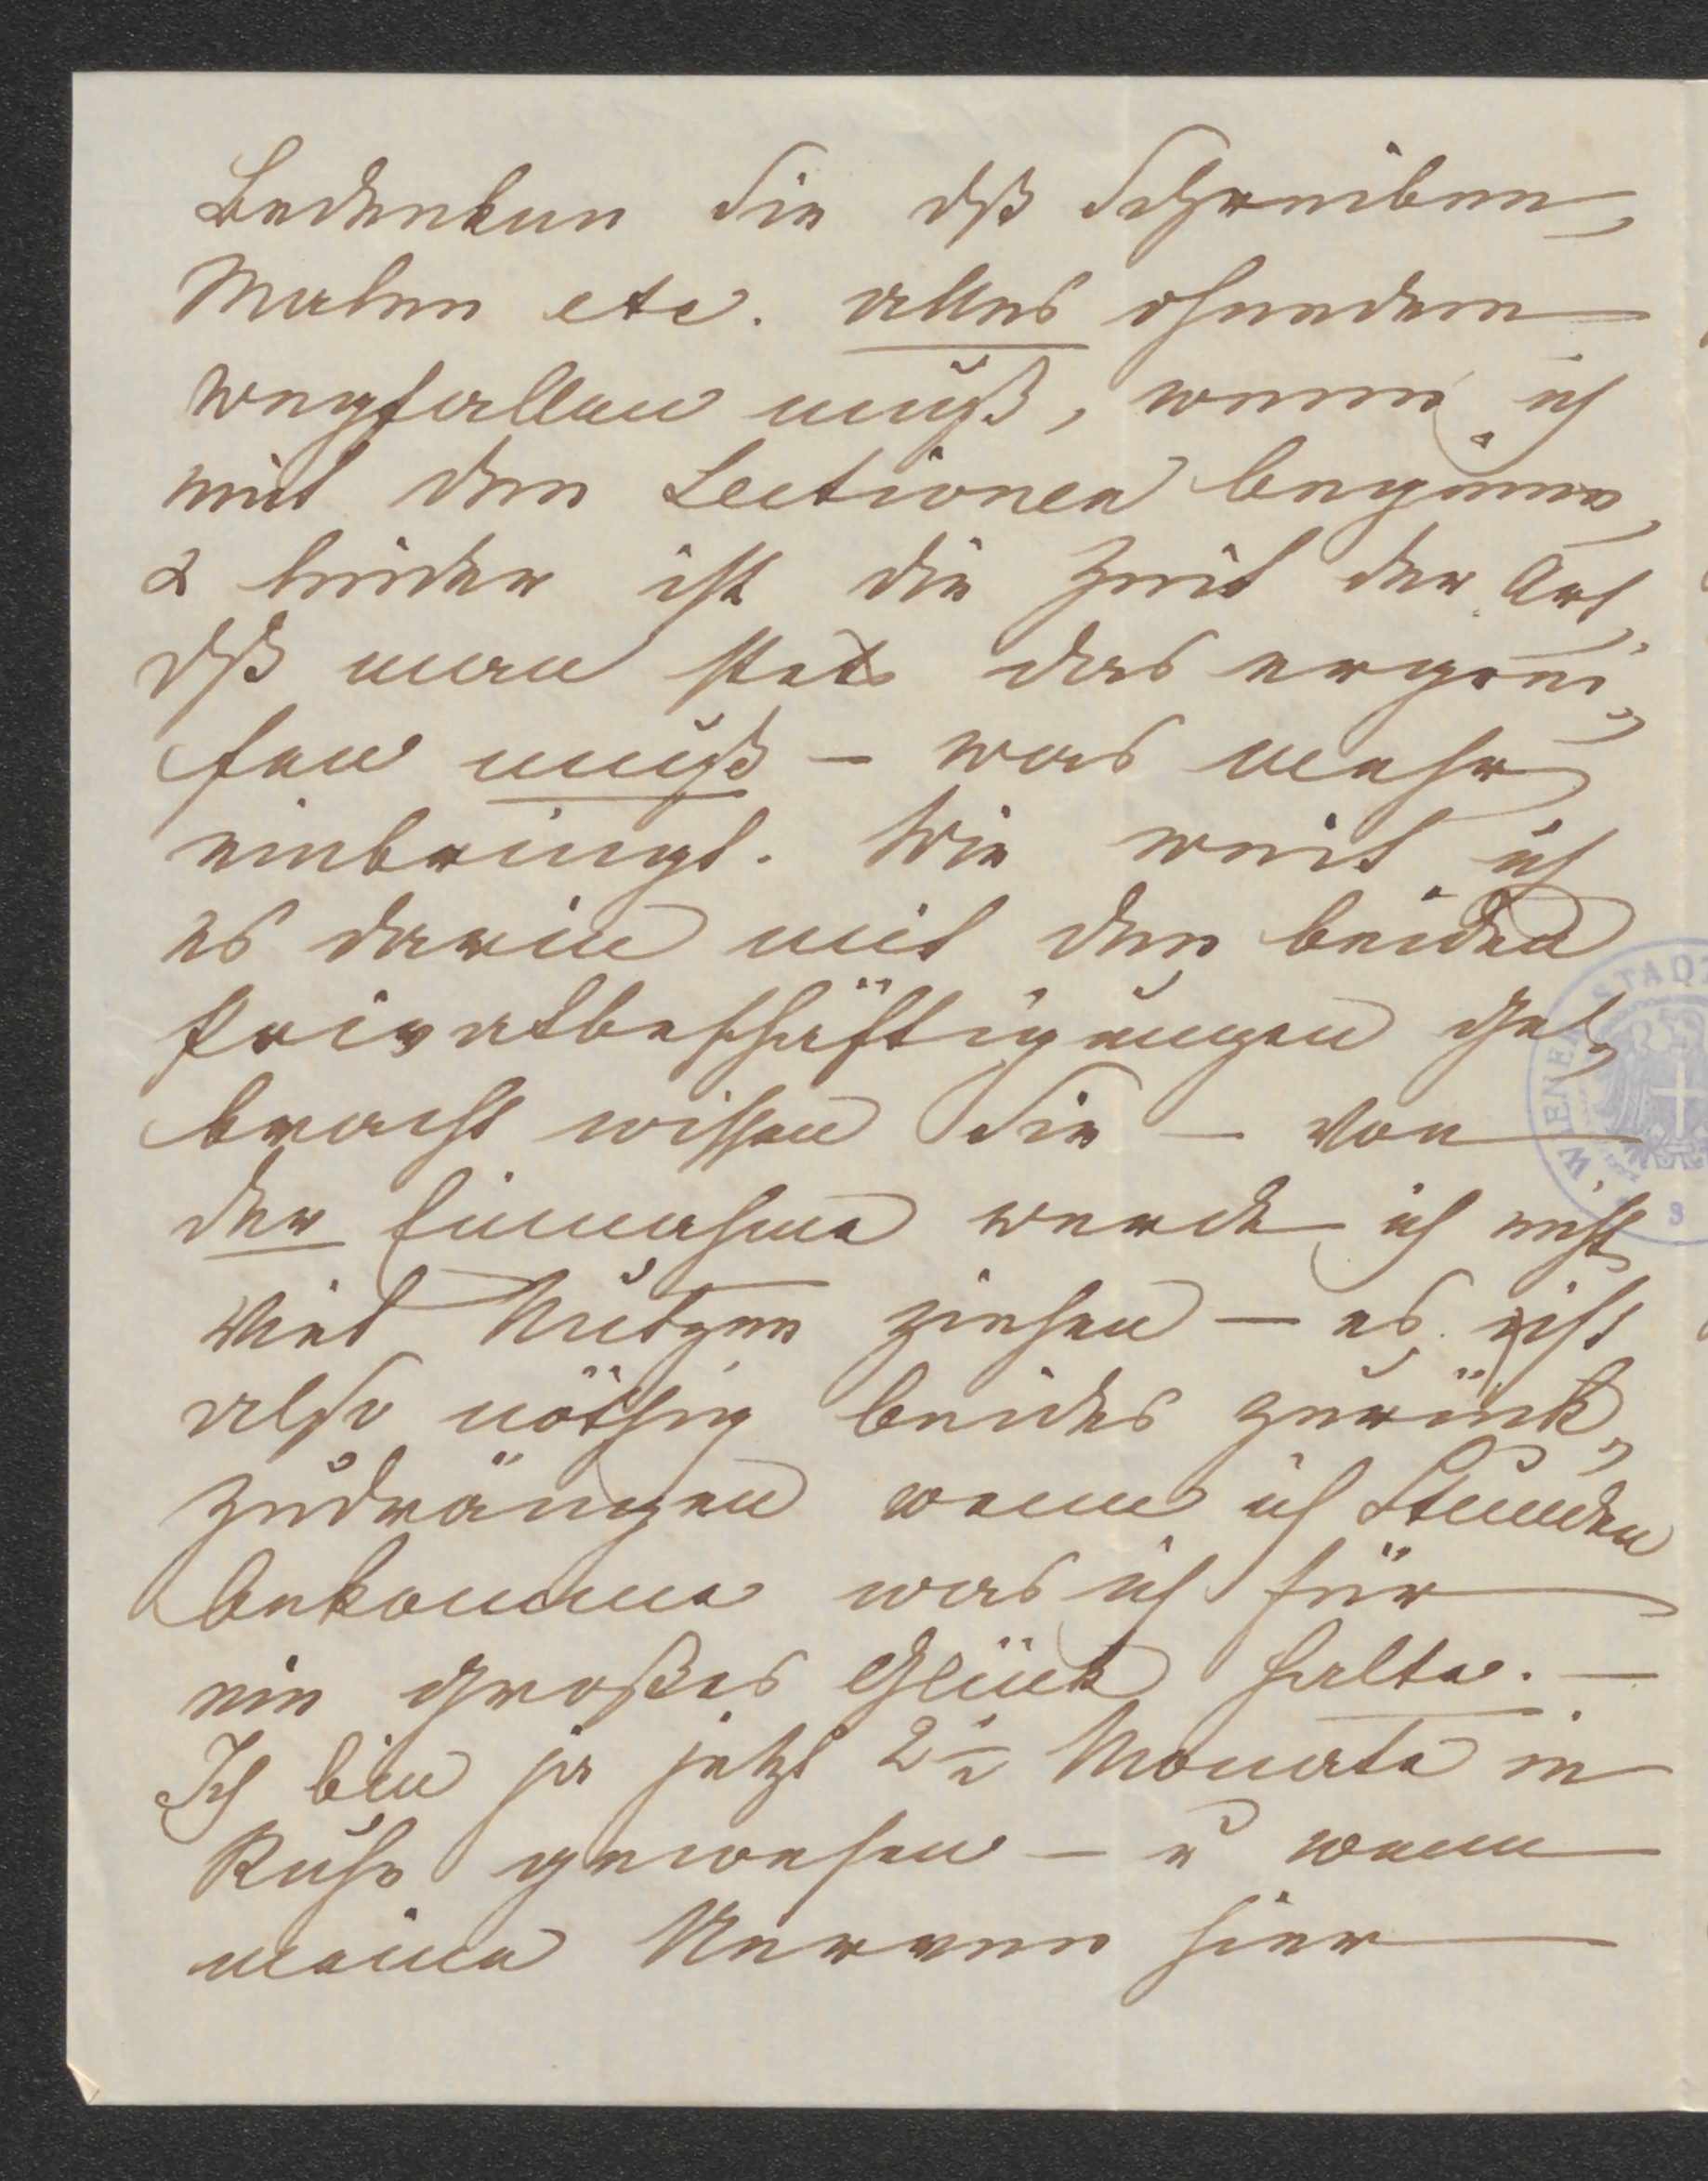 Bedenken Sie dß Schreiben,
Malen etc. alles ohnedem
wegfallen muß, wenn ich
mit den Lectionen beginne,
& leider ist die Zeit der Art,
dß man stets das ergrei„
fen muß – was mehr
einbringt. Wie weit ich
es darin mit den beiden
Privatbeschäftigungen ge„
bracht wissen Sie – von
der Einnahme werde ich nicht
viel Nutzen ziehen – es ist
also nöthig beides zurück„
zudrängen wenn ich Stunden
bekomme was ich für
ein großes Glück halte. –
Ich bin ja jetzt 2½ Monate in
Ruhe gewesen – u wenn
meine Nerven hier
WIENER STADT